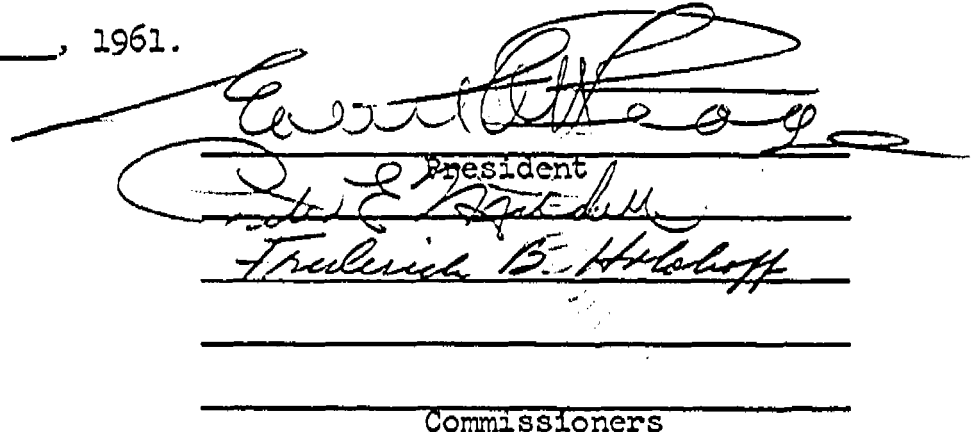 , 1961.
President
Peter E. Mitchell
Frederick B. Holoboff
Commissioners